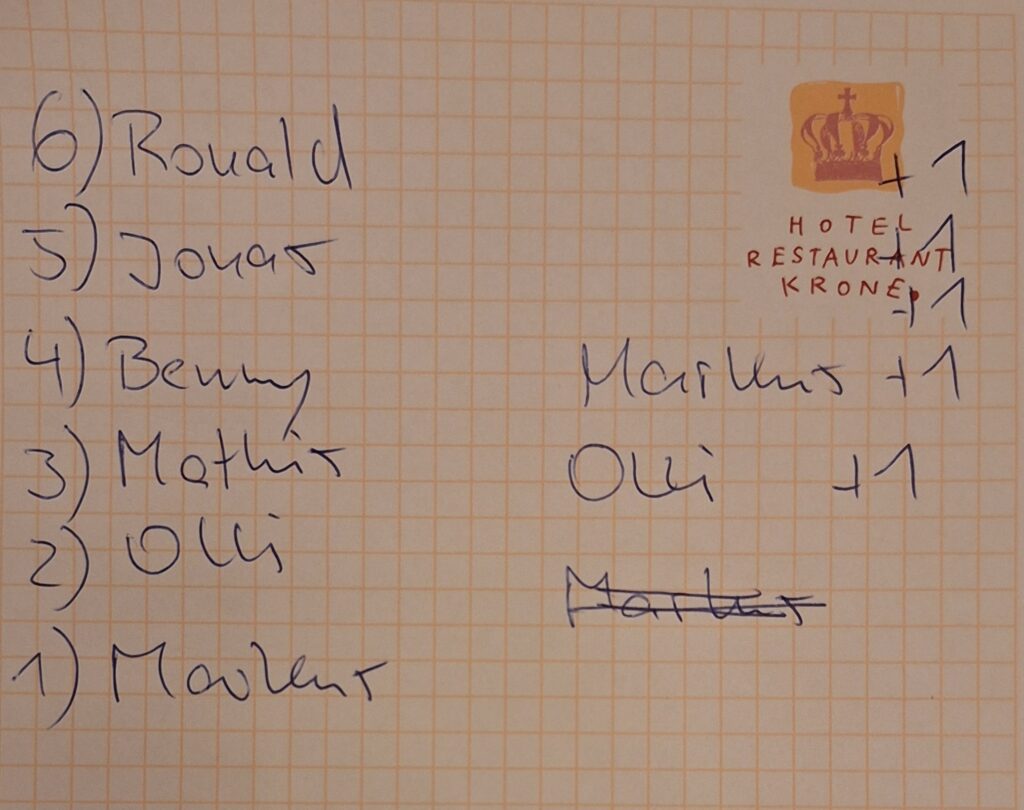 6) Ronald
+1
HOTEL
+1
5) Jonas
RESTAURANT
KRONE
+1
4) Benny
Markus +1
3) Mathis
Olli +1
2) Olli
Markus
1) Markus